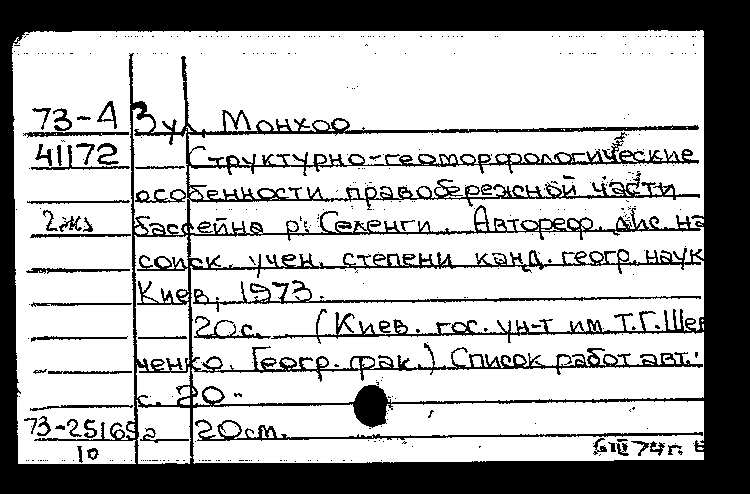 73-А Зул, Монхоо.
41172 Структурно-геоморфологические
особенности правобережной части
2жз бассейна р. Селенги. Автореф. дис. на
соиск. учен. степени канд. геогр. наук
Киев, 1973.
20с. (Киев. гос. ун-т им. Т.Г. Шев
ченко. Геогр. фак.) Список работ авт.:
с. 20.
73-25165а 20см.
10 6 III 74г.